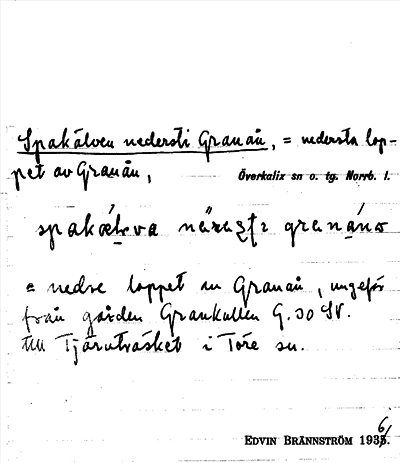 Spakälven nedersti Granån, = nedersta lop-
pet av Granån,
Överkalix sn o. tg. Norrb. l.
= nedre loppet av Granån, ungefär
från gården Grankullen G. 30 SV.
till Tjärnträsket i Töre sn.
EDVIN BRÄNNSTRÖM 1936.